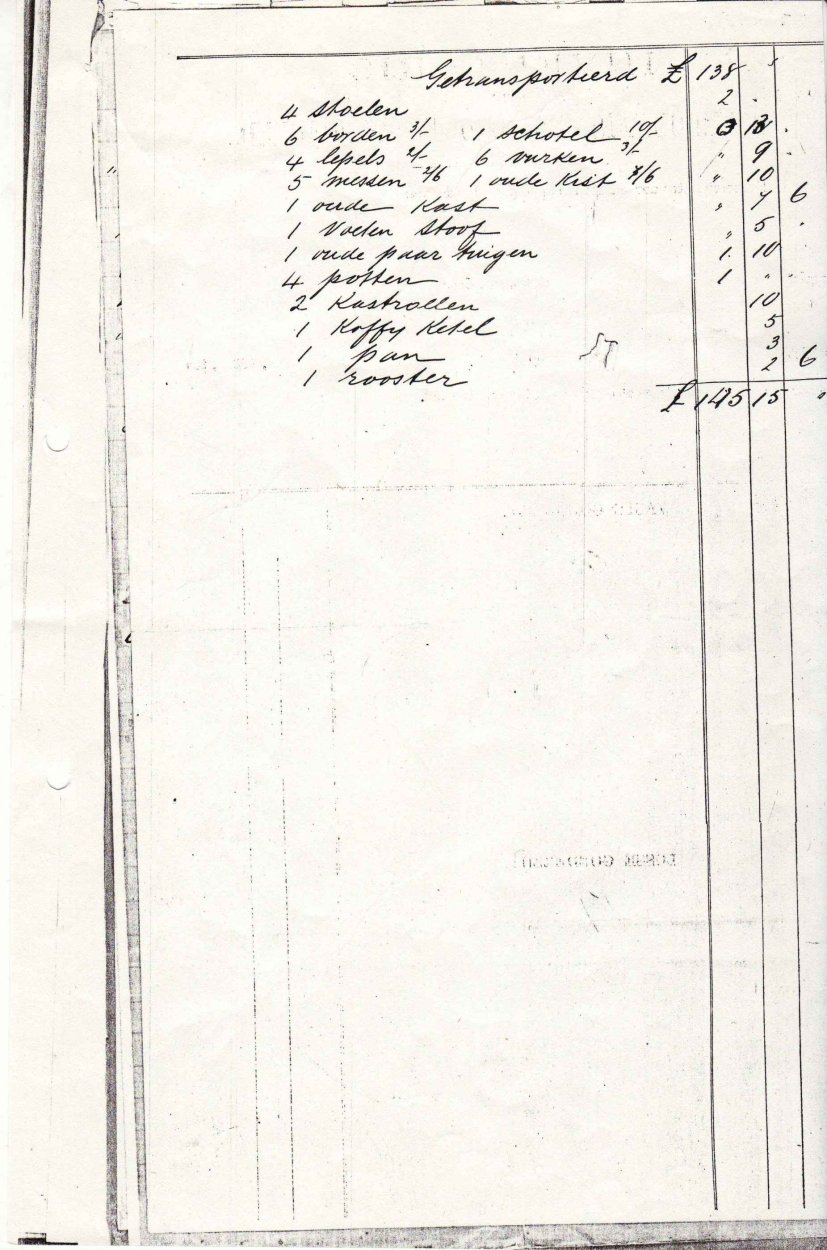 Getransporteerd £ 138 "
4 stoelen 2 .
6 borden 3/- 1 schotel 10/- 13 .
4 lepels 2/- 6 vurken 3/- " 9 .
5 messen 2/6 1 oude Kist 7/6 " 10
1 oude Kast " 7 6
1 Voeten Stoof " 5 .
1 oude paar tuigen 1 10
4 potten 1 " .
2 Kastrollen 10
1 Koffy Ketel 5
1 pan 3
1 rooster 2 6
£ 145 15 "